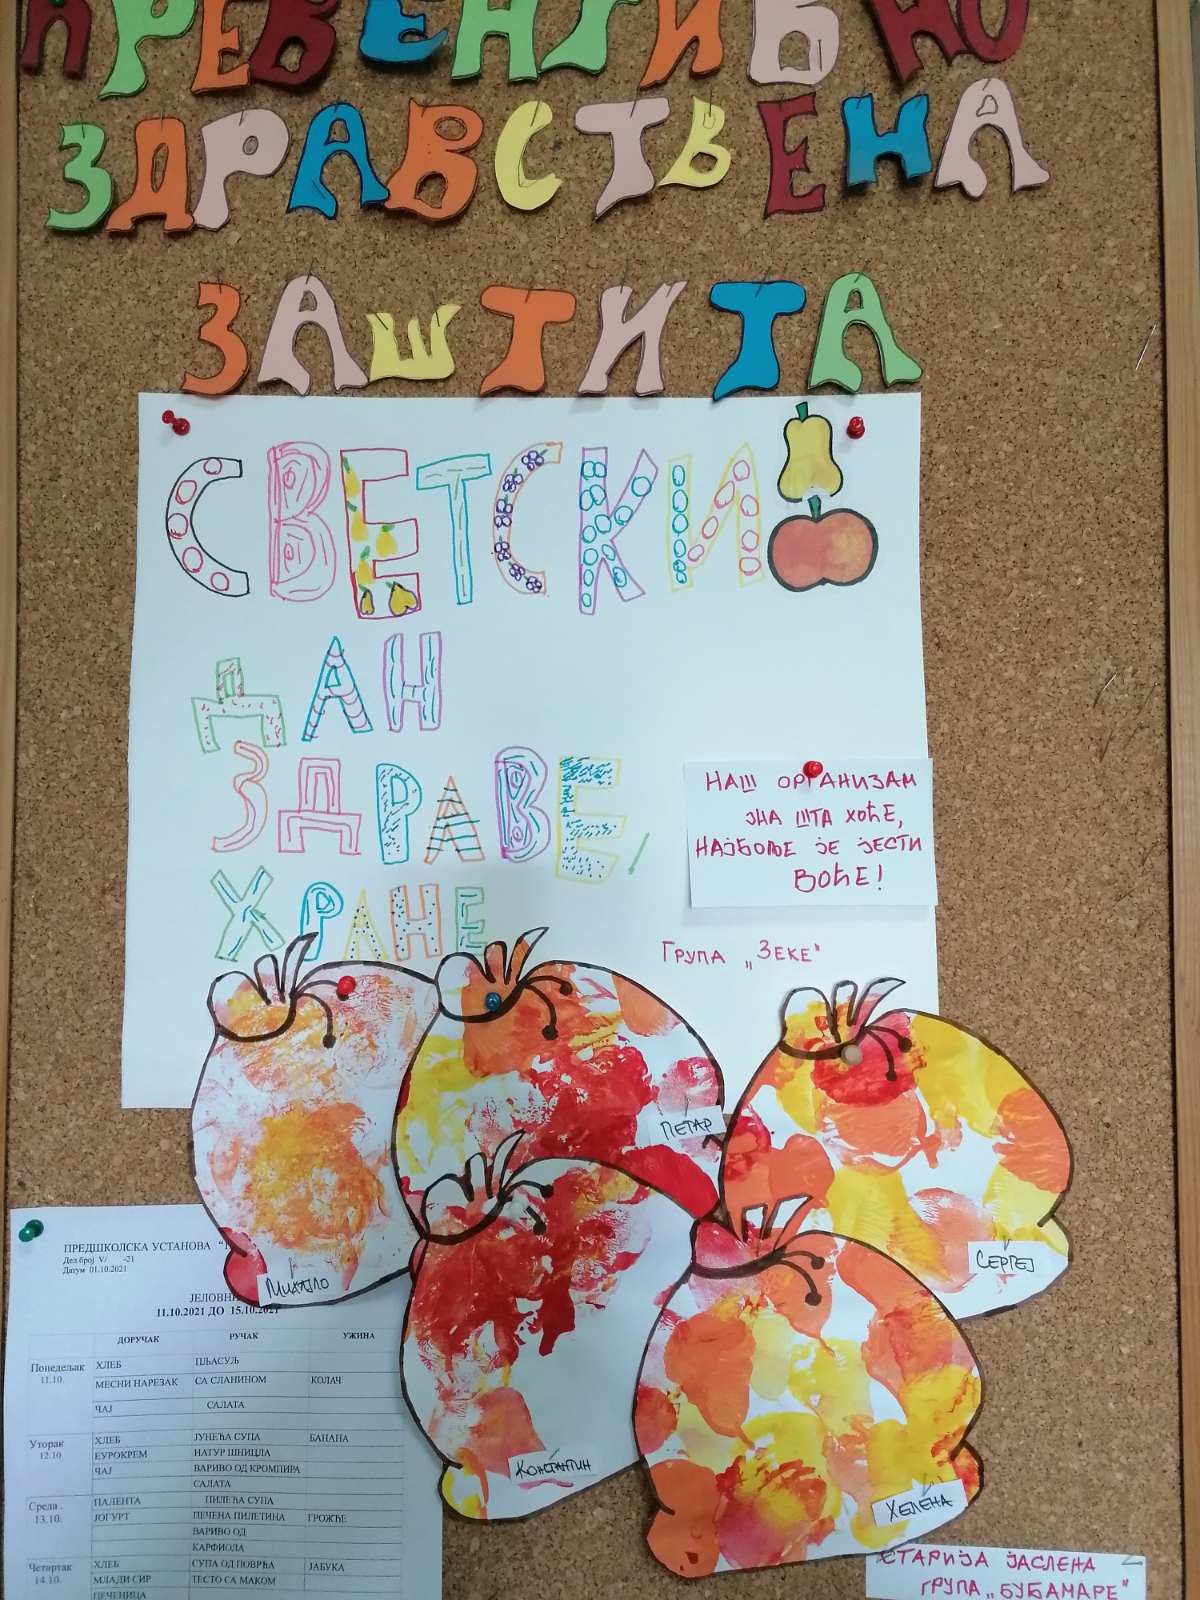 ПРЕВЕНТИВНО
ЗДРАВСТВЕНА
ЗАШТИТА
СВЕТСКИ
ДАН
ЗДРАВЕ
ХРАНЕ
НАШ ОРГАНИЗАМ
ЗНА ШТА ХОЋЕ,
НАЈБОЉЕ ЈЕ ЈЕСТИ
ВОЋЕ!
ГРУПА „ЗЕКЕ"
ПЕТАР
СЕРГЕЈ
МИХАЈЛО
КОНСТАНТИН
ХЕЛЕНА
СТАРИЈА ЈАСЛЕНА
ГРУПА „БУБАМАРЕ"
ПРЕДШКОЛСКА УСТАНОВА
Дел.број V/ -21
Датум 01.10.2021
ЈЕЛОВНИ
11.10.2021 ДО 15.10.2021
ДОРУЧАК РУЧАК УЖИНА
Понедељак ХЛЕБ ПЉАСУЉ
11.10. МЕСНИ НАРЕЗАК СА СЛАНИНОМ КОЛАЧ
ЧАЈ САЛАТА
Уторак ХЛЕБ ЈУНЕЋА СУПА БАНАНА
12.10 ЕУРОКРЕМ НАТУР ШНИЦЛА
ЧАЈ ВАРИВО ОД КРОМПИРА
САЛАТА
Среда . ПАЛЕНТА ПИЛЕЋА СУПА
13.10. ЈОГУРТ ПЕЧЕНА ПИЛЕТИНА ГРОЖЂЕ
ВАРИВО ОД
КАРФИОЛА
Четвртак ХЛЕБ СУПА ОД ПОВРЋА ЈАБУКА
14.10. МЛАДИ СИР ТЕСТО СА МАКОМ
ПЕЧЕНИЦА